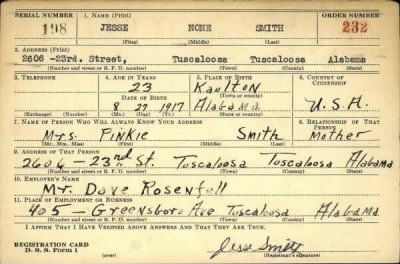 SERIAL NUMBER 1. NAME (Print) ORDER NUMBER
198 JESSE NONE SMITH 232
(First) (Middle) (Last)
2. ADDRESS (Print)
2606 -23rd. Street, Tuscaloosa Tuscaloosa Alabama
(Number and street or R. F. D. number) (Town) (County) (State)
3. TELEPHONE 4. AGE IN YEARS 5. PLACE OF BIRTH 6. COUNTRY OF CITIZENSHIP
23 Kaulton
DATE OF BIRTH (Town or county)
8 27 1917 Alabama U.S.A.
(Exchange) (Number) (Mo.) (Day) (Yr.) (State or country)
7. NAME OF PERSON WHO WILL ALWAYS KNOW YOUR ADDRESS 8. RELATIONSHIP OF THAT PERSON
Mrs. Pinkie Smith Mother
(Mr., Mrs., Miss) (First) (Middle) (Last)
9. ADDRESS OF THAT PERSON
2606 - 23nd St. Tuscaloosa Tuscaloosa Alabama
(Number and street or R. F. D. number) (Town) (County) (State)
10. EMPLOYER'S NAME
Mr. Dave Rosenfell
11. PLACE OF EMPLOYMENT OR BUSINESS
405 - Greensboro Ave Tuscaloosa Alabama
(Number and street or R. F. D. number) (Town) (County) (State)
I AFFIRM THAT I HAVE VERIFIED ABOVE ANSWERS AND THAT THEY ARE TRUE.
REGISTRATION CARD
D. S. S. Form 1 (over) Jesse Smith
(Registrant's signature)